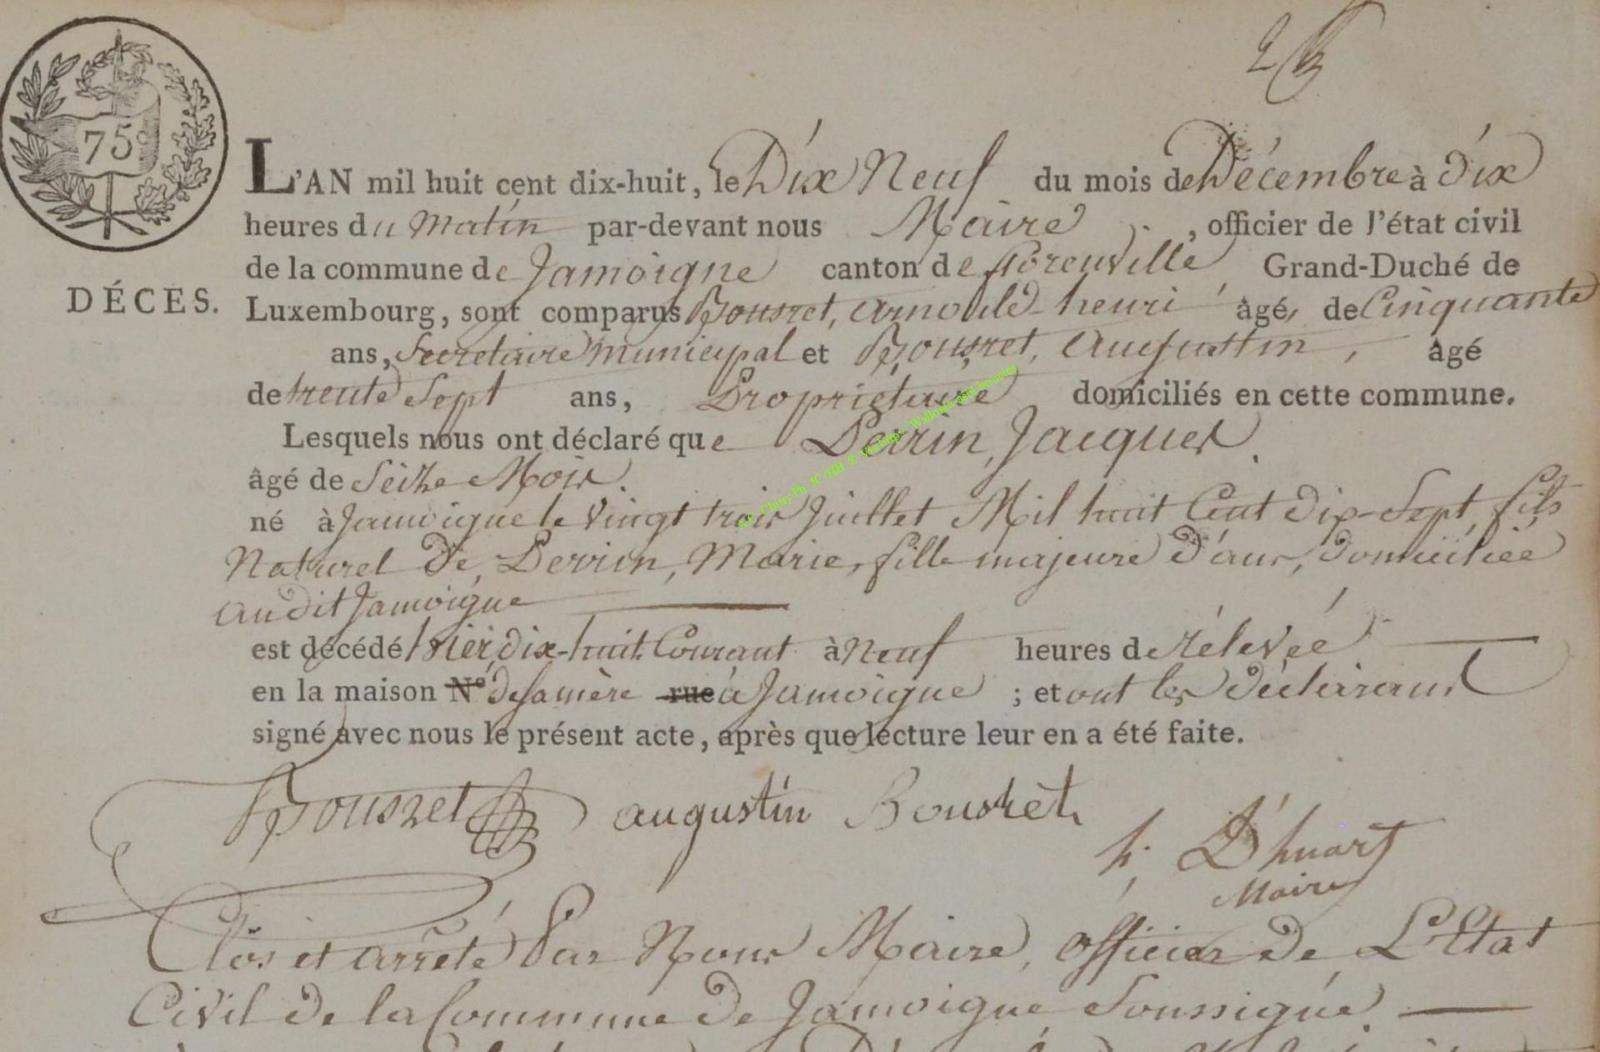 75
L'AN mil huit cent dix-huit, le Dix Neuf du mois de Décembre à dix
heures du Matin par-devant nous Maire, officier de l'état civil
de la commune de Jamoigne canton de florenville Grand-Duché de
DÉCÈS. Luxembourg, sont comparus Bousret, arnould henri âgé, de Cinquante
ans, Secretaire municipal et Bousret, Augustin, âgé
de trente Sept ans, Propriétaire domiciliés en cette commune.
Lesquels nous ont déclaré que Perrin, Jacques.
âgé de Seize Mois.
né à Jamoigne le Vingt trois Juillet Mil huit Cent dix-Sept, fils
Naturel de Perrin, Marie, fille majeure d'ans, domiciliée
audit Jamoigne
est décédé hier, dix-huit Courant à Neuf heures de rélevée
en la maison N.o de sa mère rue à Jamoigne ; et ont les déclarans
signé avec nous le présent acte, après que lecture leur en a été faite.
Bousret augustin Bousret
h. D'huart
Maire
Clos et arrêté Par Nous Maire, officier de L'Etat
Civil de la Commune de Jamoigne Soussigné